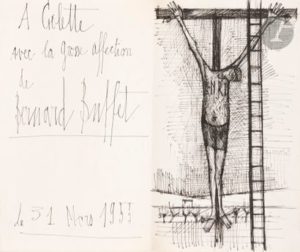 A Colette
avec la grosse affection
de
Bernard Buffet
Le 31 Mars 1955